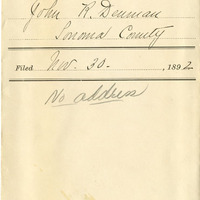 John R. Denman
Sonoma County
Filed Nov. 30 - , 1892
No address